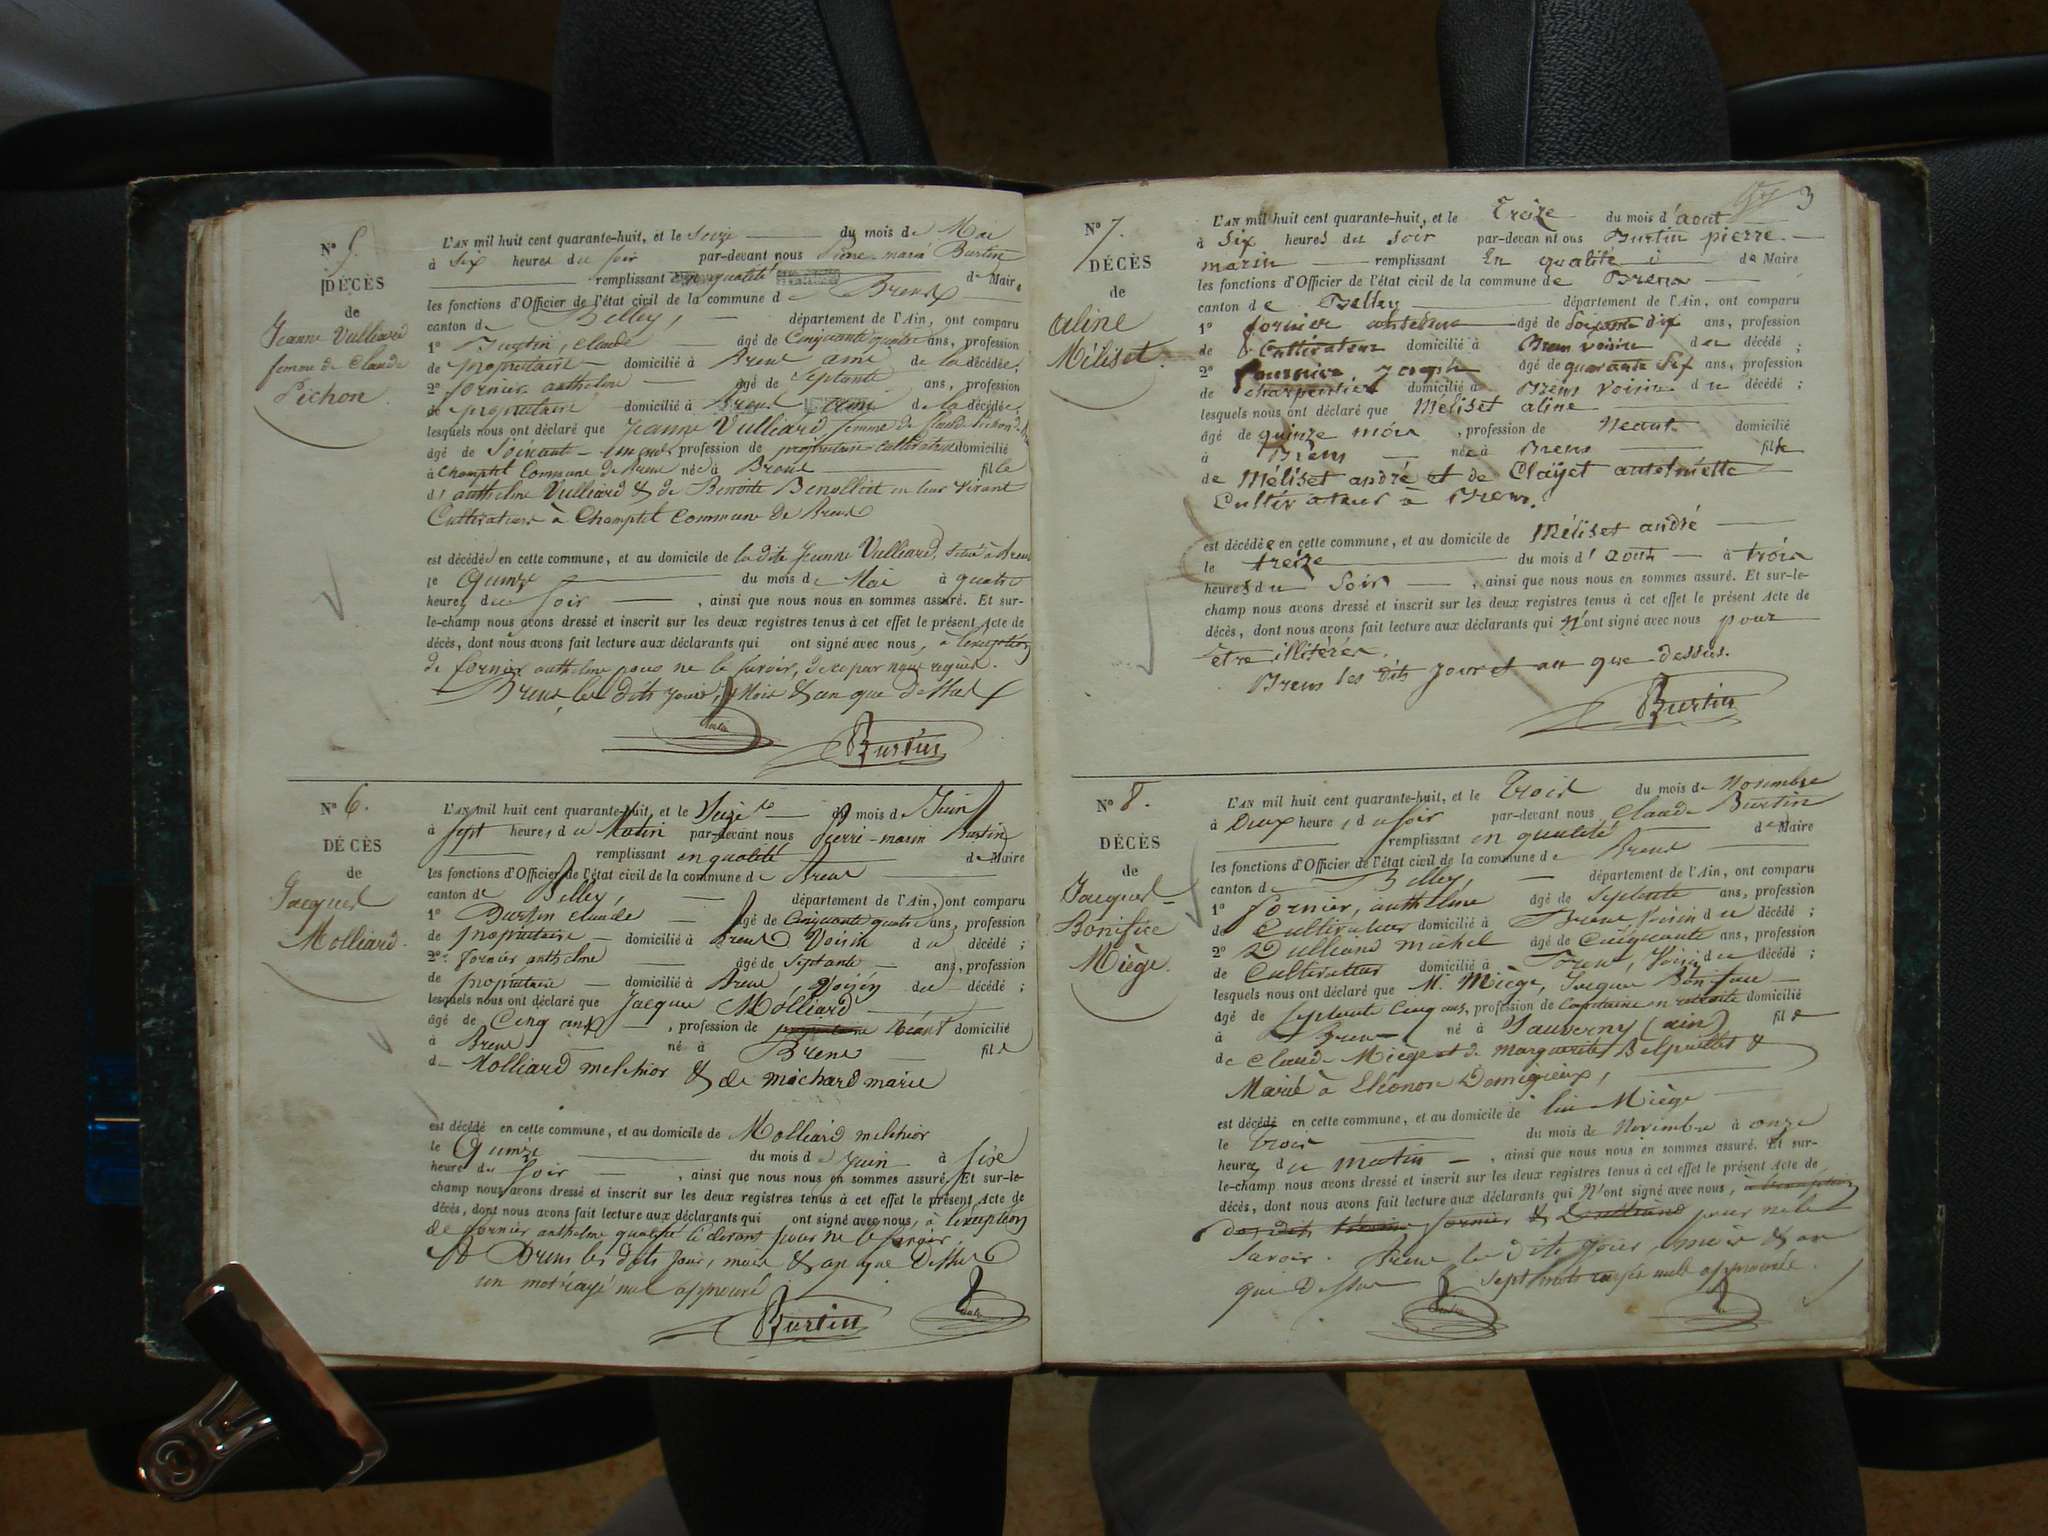 N° 5.
DÉCÈS
de
Jeanne Vulliard
femme de Claude
Pichon
L'AN mil huit cent quarante-huit, et le Seize du mois de Mai
à Six heures du Soir par-devant nous Pierre-marin Burtin
remplissant en qualité de Maire
les fonctions d'Officier de l'état civil de la commune de Brens
canton de Belley, département de l'Ain, ont comparu
1° Burtin, Claude âgé de Cinquante quatre ans, profession
de propriétaire domicilié à Brens ami de la décédée;
2° fornier anthelme âgé de Septante ans, profession
de propriétaire domicilié à Brens ami de la décédée,
lesquels nous ont déclaré que Jeanne Vulliard femme de Claude Pichon
âgé de Soixante profession de propriétaire-cultivateur domicilié
à Champtel Commune de Brens née à Brens fille
d'anthelme Vulliard & de Benoite en leur vivant
Cultivateurs à Champtel Commune de Brens
est décédée en cette commune, et au domicile de la dite Jeanne Vulliard, Situé à Brens
le Quinze du mois de Mai à quatre
heures du soir, ainsi que nous nous en sommes assuré. Et sur-
le-champ nous avons dressé et inscrit sur les deux registres tenus à cet effet le présent Acte de
décès, dont nous avons fait lecture aux déclarants qui ont signé avec nous, à l'exception
de fornier anthelme pour ne le savoir, de ce par nous requis.
Brens les dits jour, mois & an que dessus
Burtin
N° 6.
DÉCÈS
de
Jacques
Molliard.
L'AN mil huit cent quarante-huit, et le Seize du mois de Juin
à sept heures du Matin par-devant nous Pierre-marin Burtin
remplissant en qualité de Maire
les fonctions d'Officier de l'état civil de la commune de Brens
canton de Belley, département de l'Ain, ont comparu
1° Burtin Claude âgé de Cinquante quatre ans, profession
de propriétaire domicilié à Brens Voisin du décédé;
2° fornier anthelme âgé de Septante ans, profession
de propriétaire domicilié à Brens, Voisin du décédé;
lesquels nous ont déclaré que Jacques Molliard
âgé de Cinq ans, profession de propriétaire Néant domicilié
à Brens né à Brens fils
de Molliard melchior & de michard marie
est décédé en cette commune, et au domicile de Molliard melchior
le Quinze du mois de Juin à sixe
heures du soir, ainsi que nous nous en sommes assuré. Et sur-le-
champ nous avons dressé et inscrit sur les deux registres tenus à cet effet le présent Acte de
décès, dont nous avons fait lecture aux déclarants qui ont signé avec nous, à l'exception
de fornier anthelme qualifié ci devant pour ne le savoir
Brens les dits jour, mois & an que Dessus
un mot rayé nul approuvé
Burtin
3
N° 7.
DÉCÈS
de
aline
Méliset.
L'AN mil huit cent quarante-huit, et le Treize du mois d'aout
à Six heures du Soir par-devant nous Burtin pierre
marin remplissant En qualité de Maire
les fonctions d'Officier de l'état civil de la commune de Brens
canton de Belley département de l'Ain, ont comparu
1° fornier antelme âgé de Soixante dix ans, profession
de Cultivateur domicilié à Brens voisin du décédé;
2° Joseph âgé de quarante Six ans, profession
de charpentier domicilié à Brens voisin du décédé;
lesquels nous ont déclaré que Méliset aline
âgé de quinze mois, profession de Neant domicilié
à Brens née à Brens fille
de Méliset andré et de Clayet antelmette
Cultivateur à Brens.
est décédée en cette commune, et au domicile de Méliset andré
le treize du mois d'aout à trois
heures du Soir, ainsi que nous nous en sommes assuré. Et sur-le-
champ nous avons dressé et inscrit sur les deux registres tenus à cet effet le présent Acte de
décès, dont nous avons fait lecture aux déclarants qui N'ont signé avec nous pour
être illitérés.
Brens les dits jour et an que dessus.
Burtin
N° 8.
DÉCÈS
de
Jacques-
Bonifice
Miège.
L'AN mil huit cent quarante-huit, et le Trois du mois de Novembre
à Deux heures du soir par-devant nous Claude Burtin
remplissant en qualité de Maire
les fonctions d'Officier de l'état civil de la commune de Brens
canton de Belley, département de l'Ain, ont comparu
1° fornier, anthelme âgé de Septente ans, profession
de Cultivateur domicilié à Brens Voisin du décédé;
2° Dulliand michel âgé de Cinquante ans, profession
de Cultivateur domicilié à Brens, Voisin du décédé;
lesquels nous ont déclaré que M. Miège, Jacques Boniface
âgé de septente cinq ans, profession de Capitaine en retraite domicilié
à Brens né à Sauverny (ain) fils
de Claude Miège et de marguerite &
Marié à Eléonore
est décédé en cette commune, et au domicile de lui Miège
le Trois du mois de Novembre à onze
heures du matin, ainsi que nous nous en sommes assuré. Et sur-
le-champ nous avons dressé et inscrit sur les deux registres tenus à cet effet le présent Acte de
décès, dont nous avons fait lecture aux déclarants qui N'ont signé avec nous, à l'exception
des dits témoins fornier & Dulliand pour ne le
savoir. Brens les dits jour, mois & an
que Dessus sept mots rayés nuls approuvés.